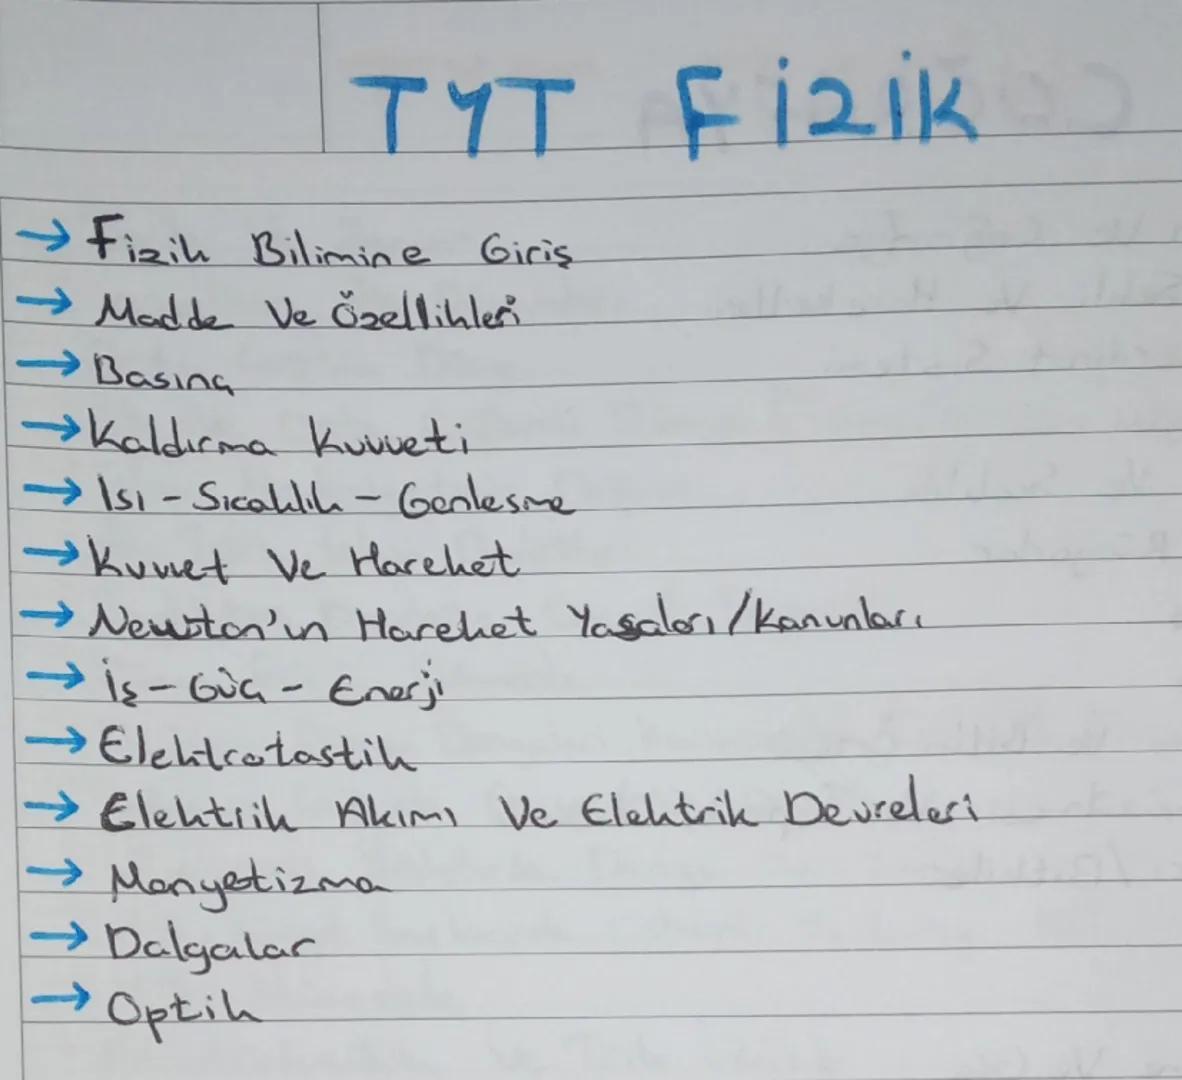 TYT Fizik
→ Fizik Bilimine Giriş
→ Madde Ve Özellikleri
→ Basınç
→ Kaldırma Kuvveti
→ Isı - Sıcaklık - Genleşme
→ Kuvvet Ve Hareket
→ Newton'ın Hareket Yaşaları/Kanunları
→ İş - Güç - Enerji
→ Elektrotastik
→ Elektrik Akımı Ve Elektrik Devreleri
→ Manyetizma
→ Dalgalar
→ Optik